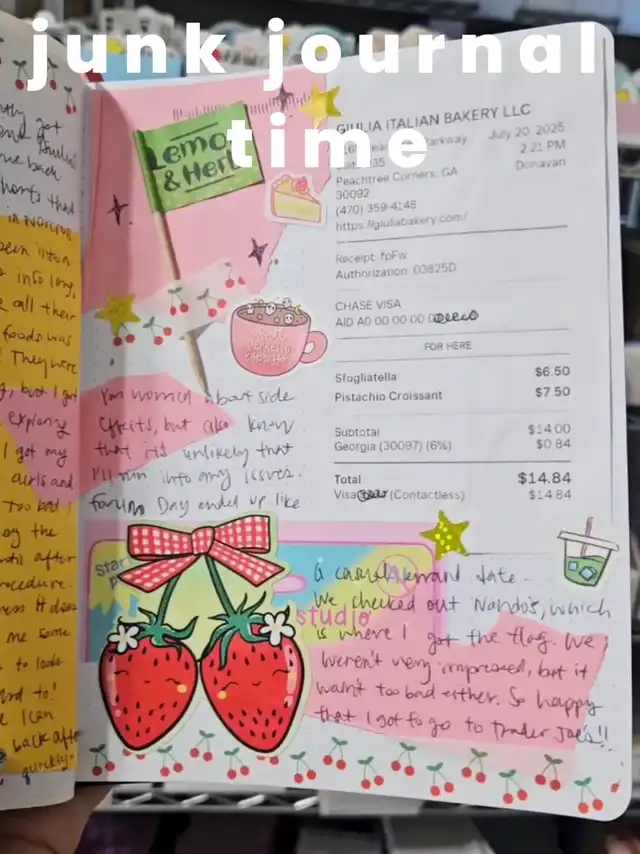 junk journal
time
got
back.
shorts that
in Norcross
been
into long,
all their
foods was
They were
, but I got
exploring
I got my
and
Too bad I
the
until after
procedure.
it does
me some
to look
to!
I can
back after
quickly.
Lemo
& Her
GIULIA ITALIAN BAKERY LLC
arkway
July 20, 2025
35
2:21 PM
Peachtree Corners, GA
Donavan
30092
(470) 359-4148
https://giuliabakery.com/
Receipt: fpFw
Authorization: 03825D
CHASE VISA
AID A0 00 00 00
FOR HERE
Sfogliatella $6.50
Pistachio Croissant $7.50
Subtotal $14.00
Georgia (30097) (6%) $0.84
Total $14.84
Visa (Contactless) $14.84
I'm worried about side
effects, but also know
that it's unlikely that
I'll run into any issues.
Day ended up like
Star
studio
a casual errand date.
We checked out Nando's, which
is where I got the flag. We
weren't very impressed, but it
wasn't too bad either. So happy
that I got to go to Trader Joe's!!